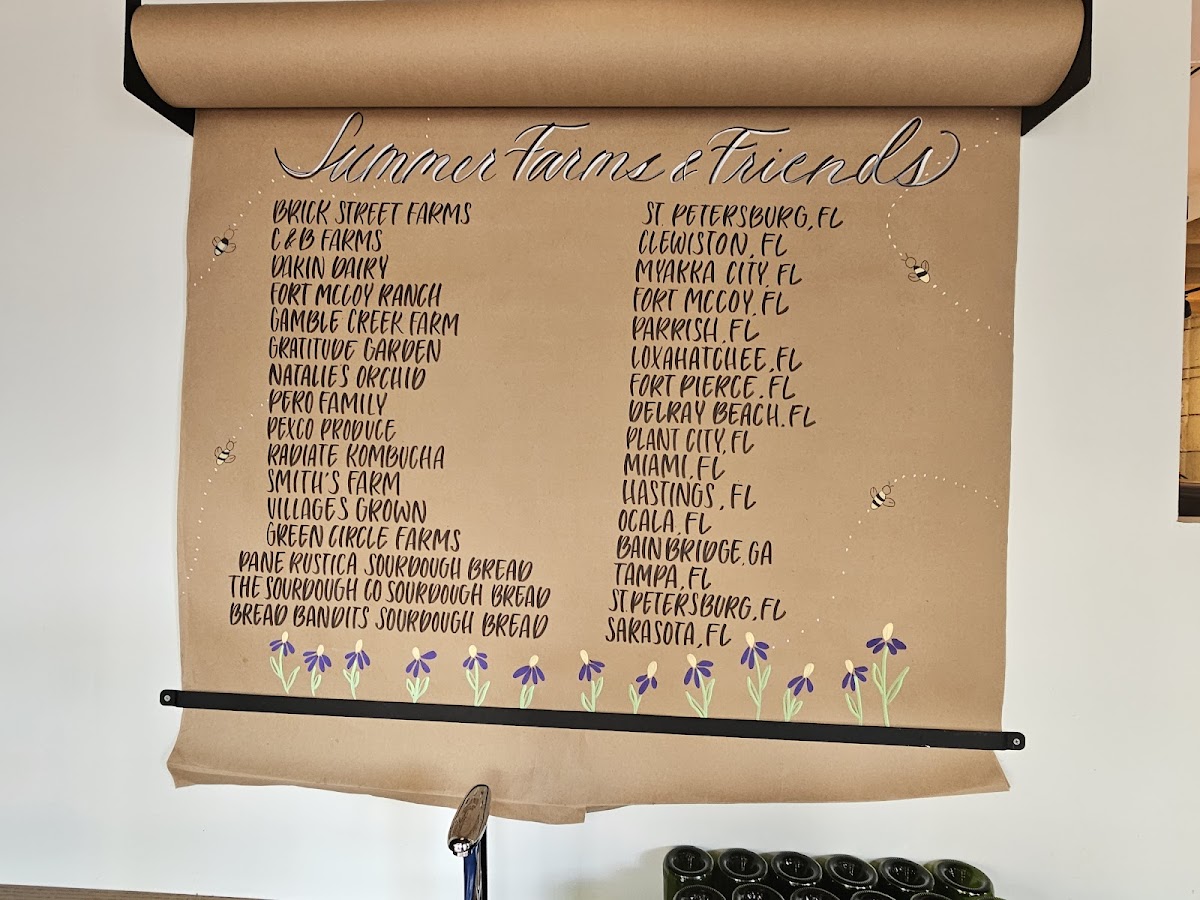 Summer Farms & Friends
BRICK STREET FARMS ST. PETERSBURG, FL
C & B FARMS CLEWISTON, FL
DAKIN DAIRY MYAKKA CITY, FL
FORT MCCOY RANCH FORT MCCOY, FL
GAMBLE CREEK FARM PARRISH, FL
GRATITUDE GARDEN LOXAHATCHEE, FL
NATALIES ORCHID FORT PIERCE, FL
PERO FAMILY DELRAY BEACH, FL
PEXCO PRODUCE PLANT CITY, FL
RADIATE KOMBUCHA MIAMI, FL
SMITH'S FARM HASTINGS, FL
VILLAGES GROWN OCALA, FL
GREEN CIRCLE FARMS BAINBRIDGE, GA
PANE RUSTICA SOURDOUGH BREAD TAMPA, FL
THE SOURDOUGH CO SOURDOUGH BREAD ST. PETERSBURG, FL
BREAD BANDITS SOURDOUGH BREAD SARASOTA, FL